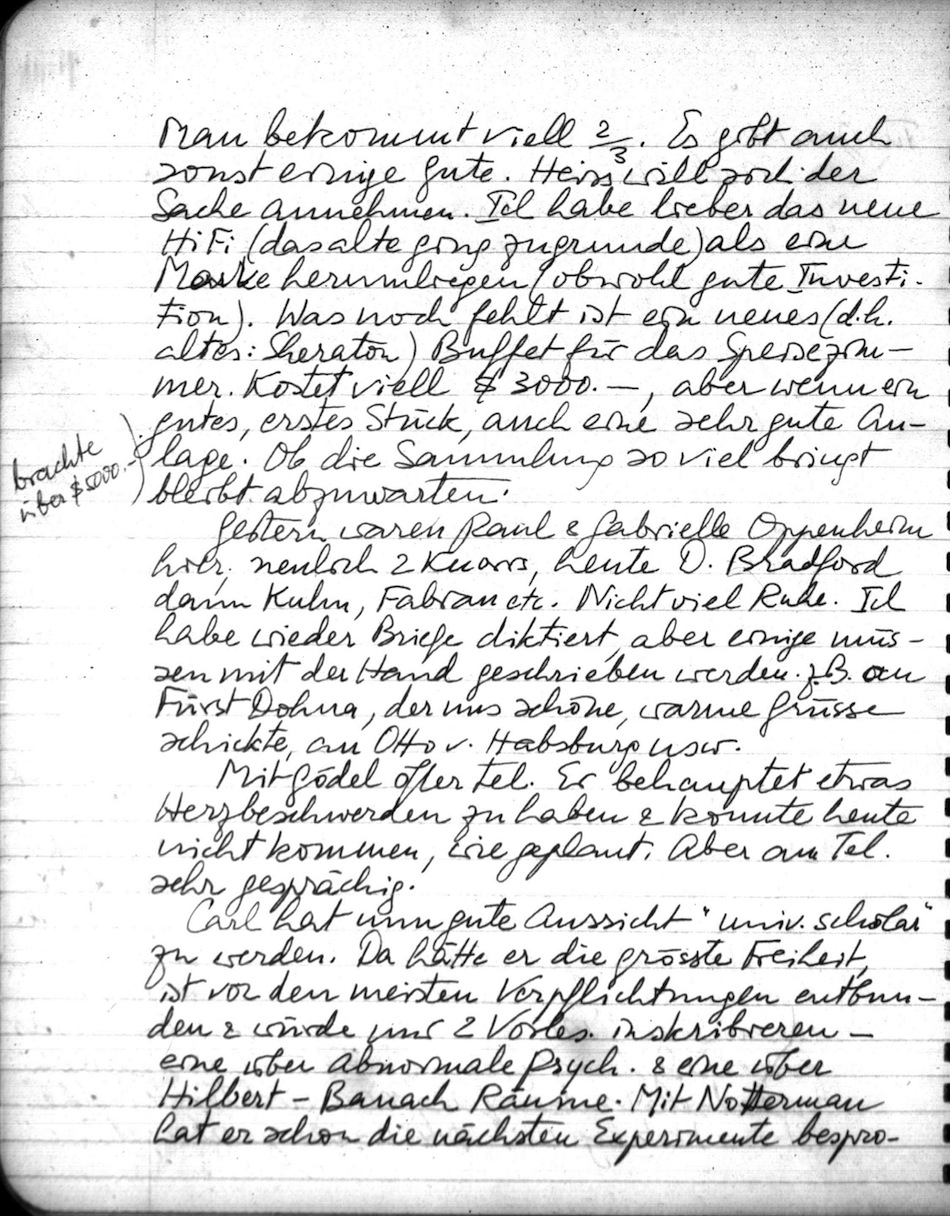 Man bekommt viell 2/3. Es gibt auch
sonst einige gute. Heiss will sich der
Sache annehmen. Ich habe lieber das neue
HiFi (das alte ging zugrunde) als eine
Marke herumliegen (obwohl gute Investi-
tion). Was noch fehlt ist ein neues (d.h.
altes: Sheraton) Buffet für das Speisezim-
mer. Kostet viell $ 3000.—, aber wenn ein
gutes, erstes Stück, auch eine sehr gute An-
lage. Ob die Sammlung so viel bringt
bleibt abzuwarten.
brachte
über $ 5000.-
Gestern waren Paul & Gabrielle Oppenheim
hier, neulich 2 Knorrs, heute D. Bradford
dann Kuhn, Fabian etc. Nicht viel Ruhe. Ich
habe wieder Briefe diktiert, aber einige müs-
sen mit der Hand geschrieben werden. z.B. an
Fürst Dohna, der uns schöne, warme Grüsse
schickte, an Otto v. Habsburg usw.
Mit Gödel öfter tel. Er behauptet etwas
Herzbeschwerden zu haben & konnte heute
nicht kommen, wie geplant. Aber am Tel.
sehr gesprächig.
Carl hat nun gute Aussicht "univ. scholar"
zu werden. Da hätte er die grösste Freiheit,
ist von den meisten Verpflichtungen entbun-
den & würde nur 2 Vorles. inskribieren —
eine über Abnormale Psych. & eine über
Hilbert - Banach Räume. Mit Notterman
hat er schon die nächsten Experimente bespro-